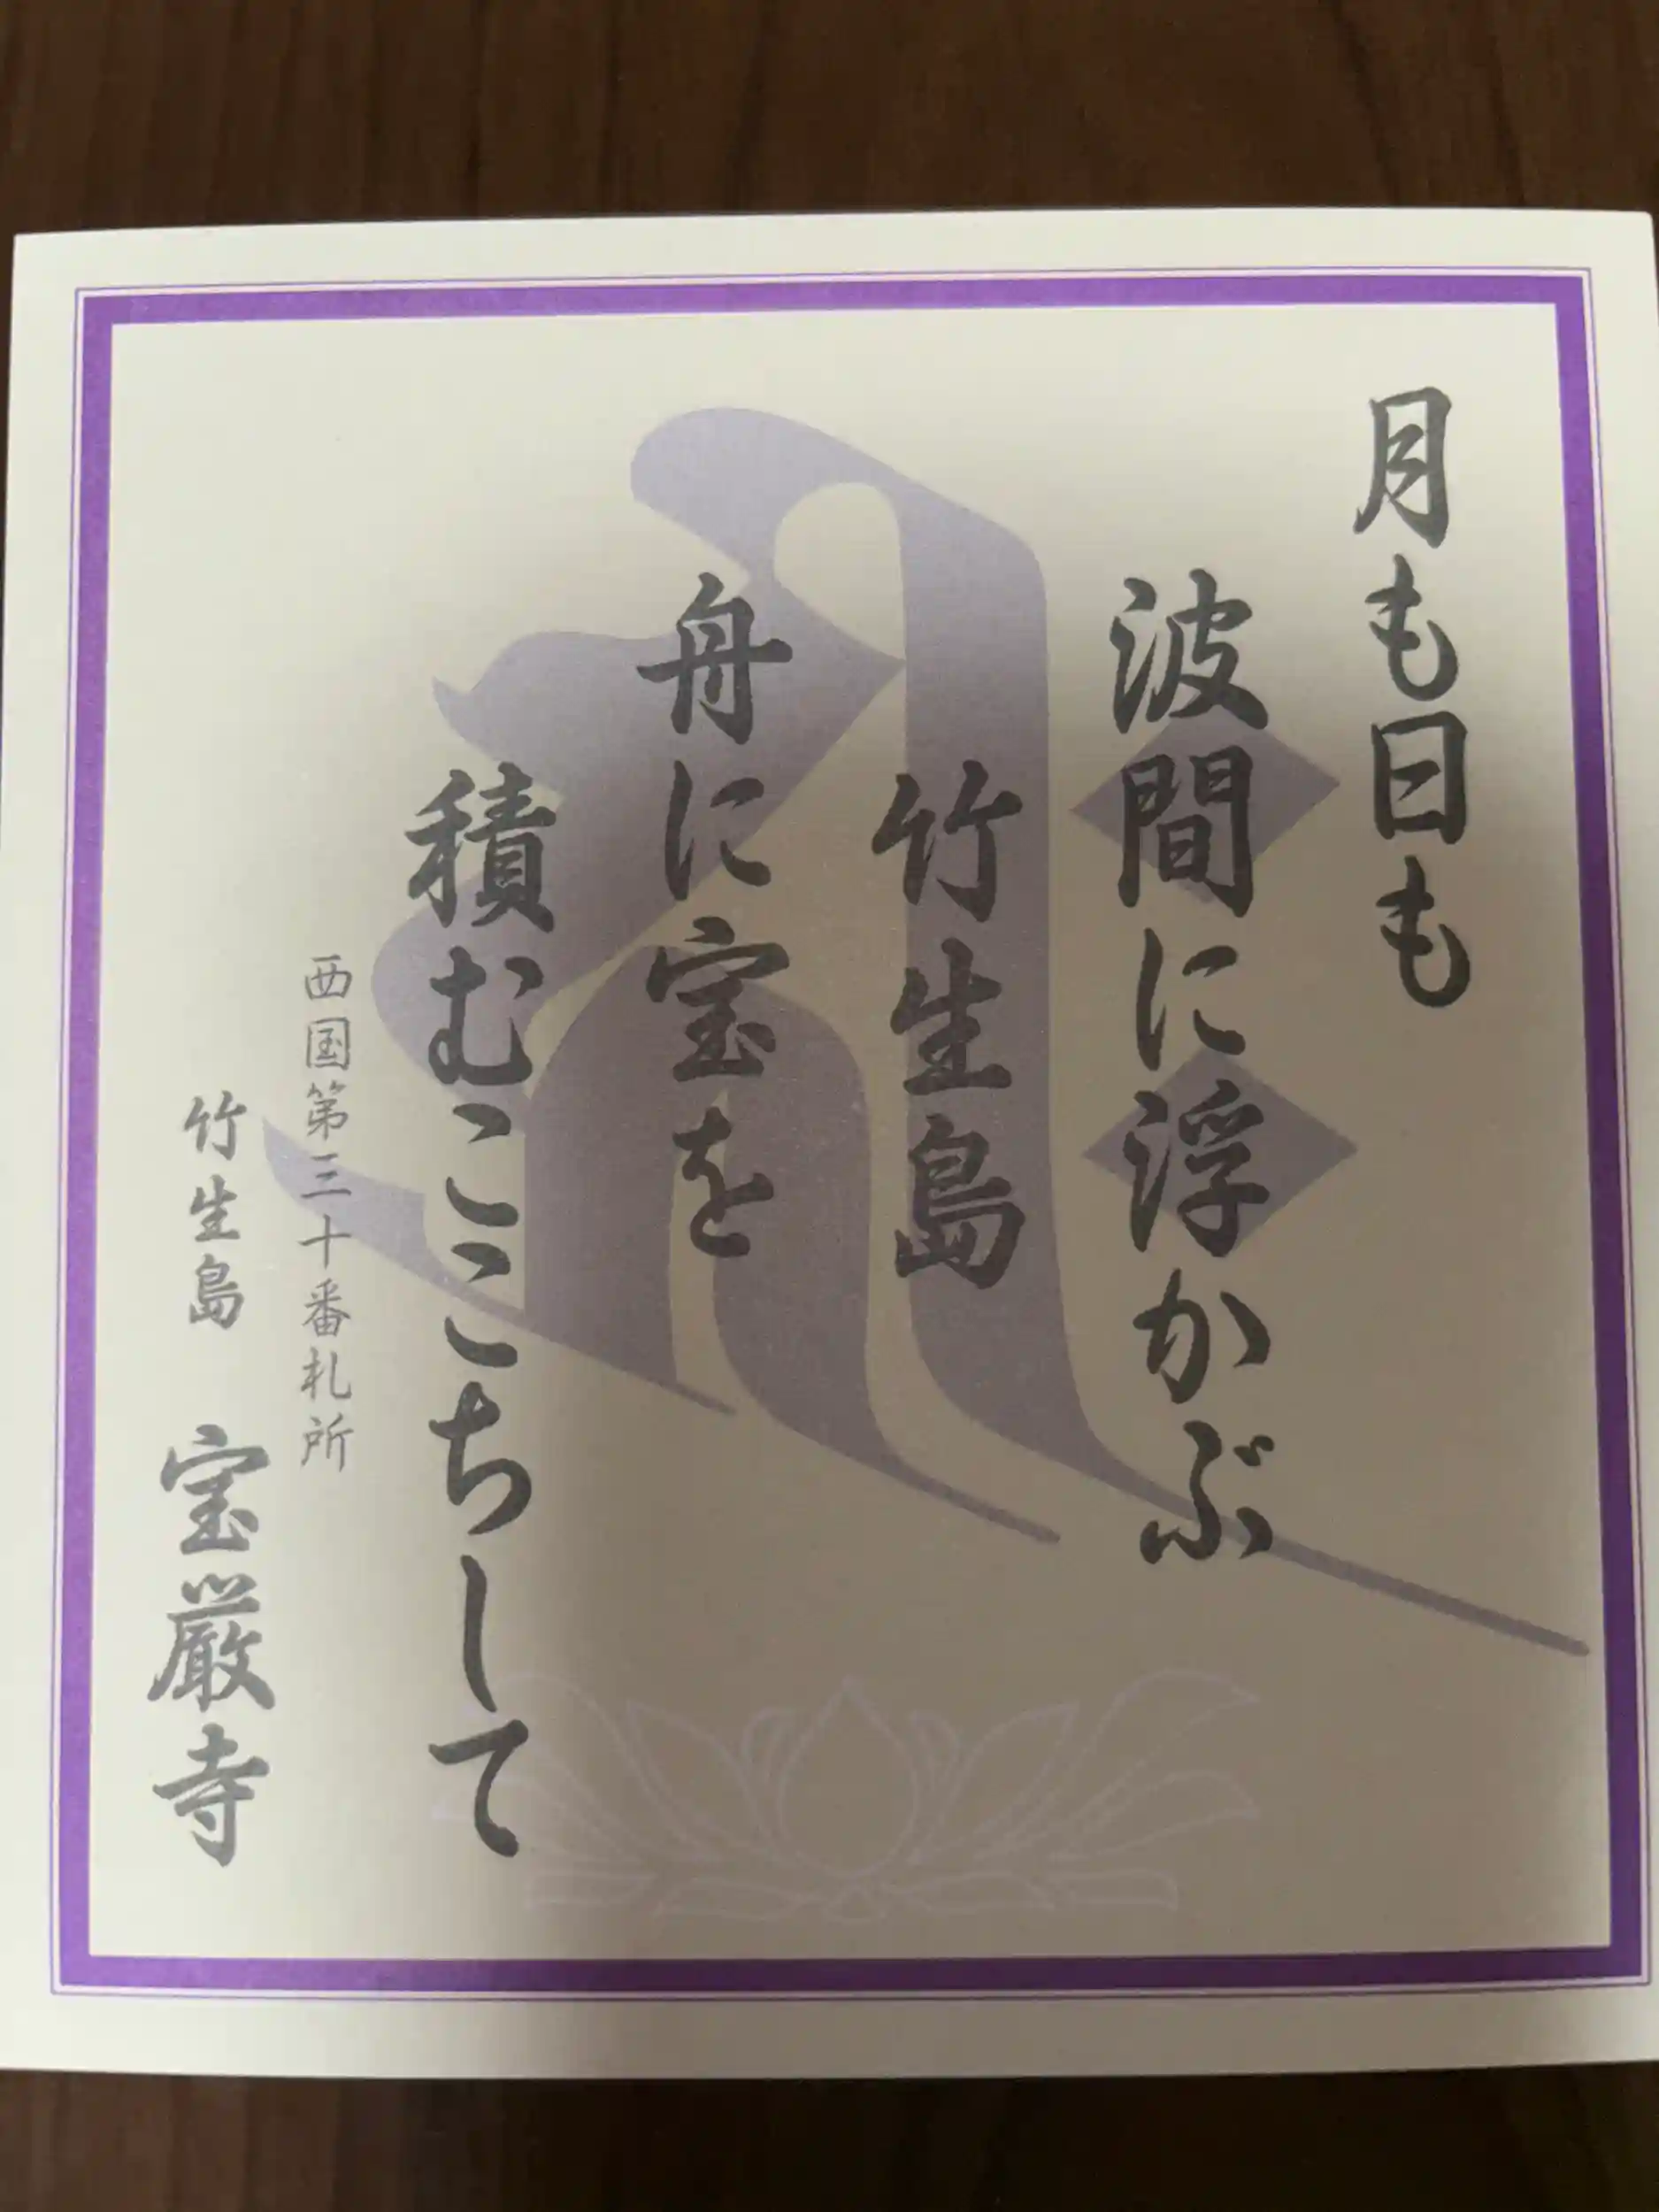 月も日も
波間に浮かぶ
竹生島
舟に宝を
積むここちして
西国第三十番札所
竹生島 宝厳寺